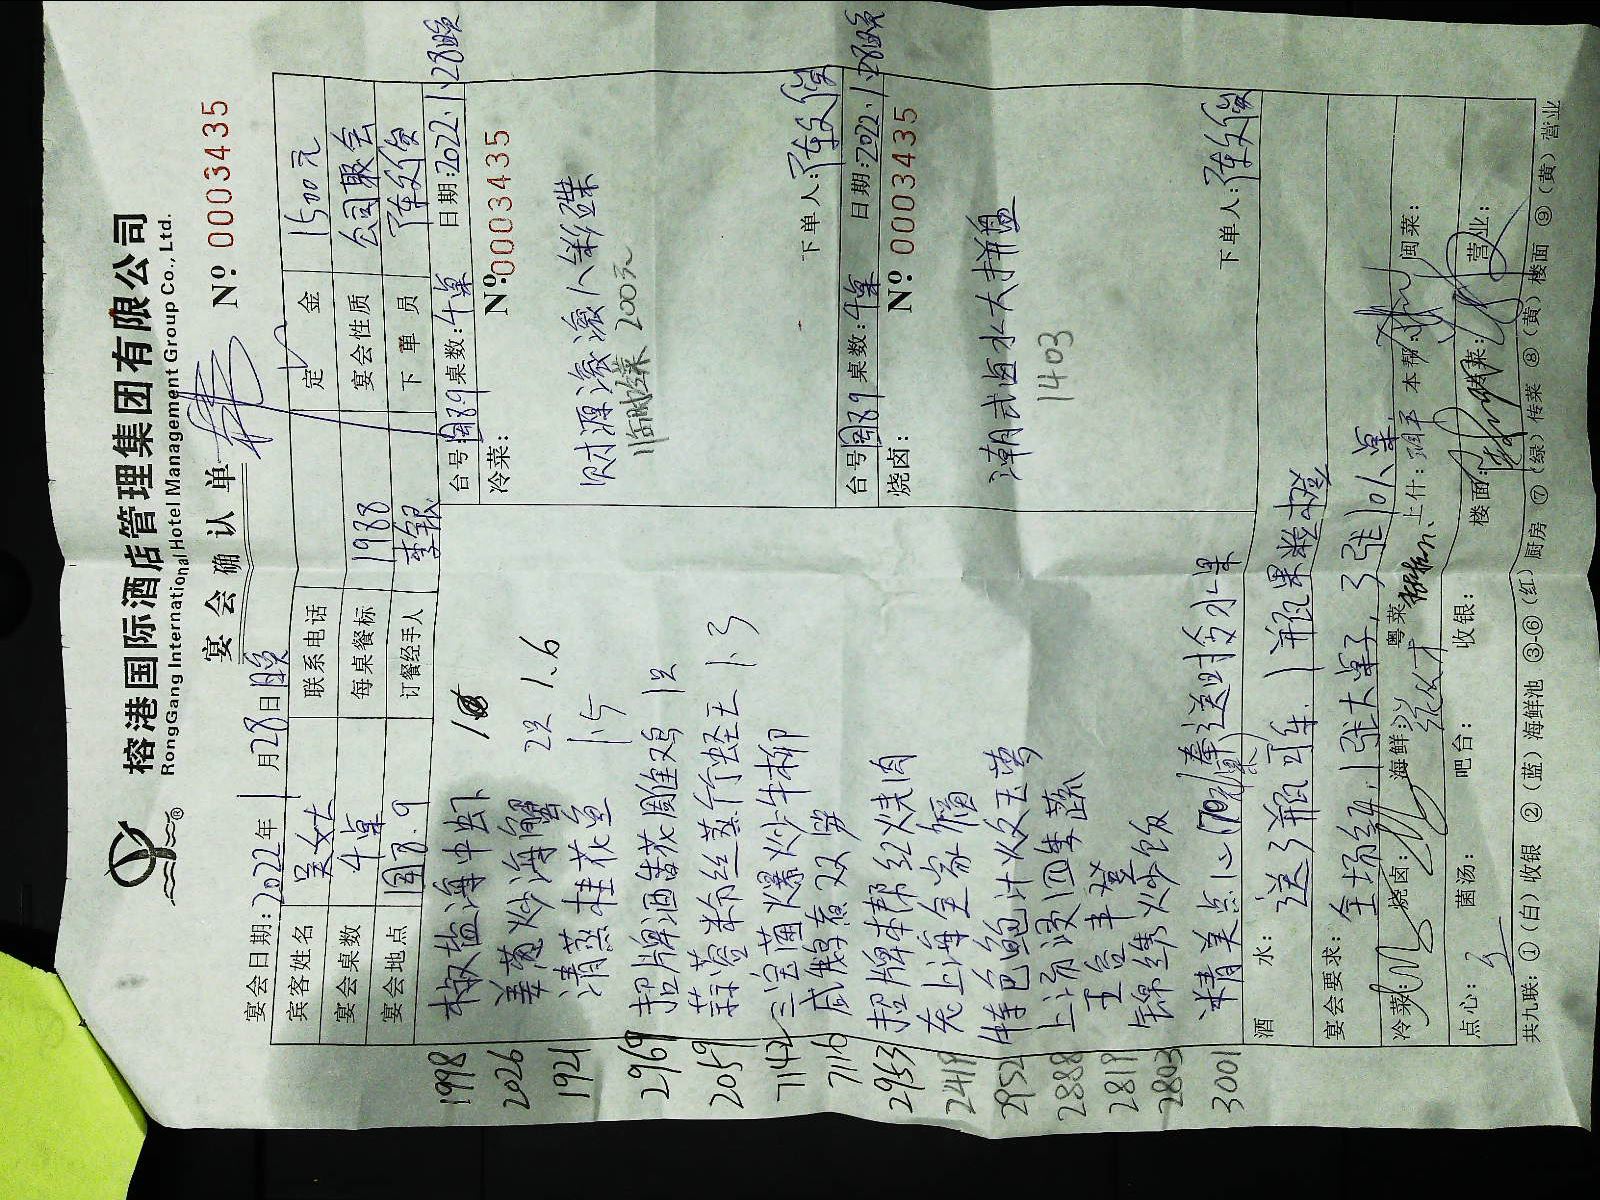 榕港国际酒店管理集团有限公司
RongGang International Hotel Management Group Co., Ltd.
®
宴会确认单
Nº 0003435
宴会日期: 2022年 1月28日晚
宾客姓名 吴女士 联系电话 定金 1500元
宴会桌数 4桌 每桌餐标 1988 宴会性质 公司聚会
宴会地点 国8.9 订餐经手人 李银 下单员 陈文俊
1998 椒盐海中虾
2026 姜葱炒海蟹 2只 1.6
1921 清蒸桂花鱼 1.5
2969 招牌酒香花雕鸡 1只
2059 蒜蓉粉丝蒸竹蛏王 1.3
7142 三宝菌爆炒牛柳
7116
2953 招牌本帮红烧肉
2418 老上海全家福
2952 特色鲍汁烩玉
2888 上汤浸四季蔬
2819 五谷丰登
2803 锦绣炒饭
3001 精美点心 送时令水果
台号: 国89 桌数: 4桌 日期: 2022.1.28晚
冷菜: Nº 0003435
财源滚滚八彩碟
临时冷菜 200元
下单人: 陈文俊
台号: 国89 桌数: 4桌 日期: 2022.1.28晚
烧卤: Nº 0003435
潮式卤水大拼盘
1403
下单人: 陈文俊
酒水: 送1瓶可乐、1瓶果粒橙
宴会要求: 全场 1张大桌子, 3张10人桌
冷菜: 烧卤: 海鲜: 粤菜 上什: 本帮: 闽菜:
点心: 菌汤: 吧台: 收银: 楼面: 传菜: 营业:
共九联: ①(白)收银 ②(蓝)海鲜池 ③-⑥(红)厨房 ⑦(绿)传菜 ⑧(黄)楼面 ⑨(黄)营业